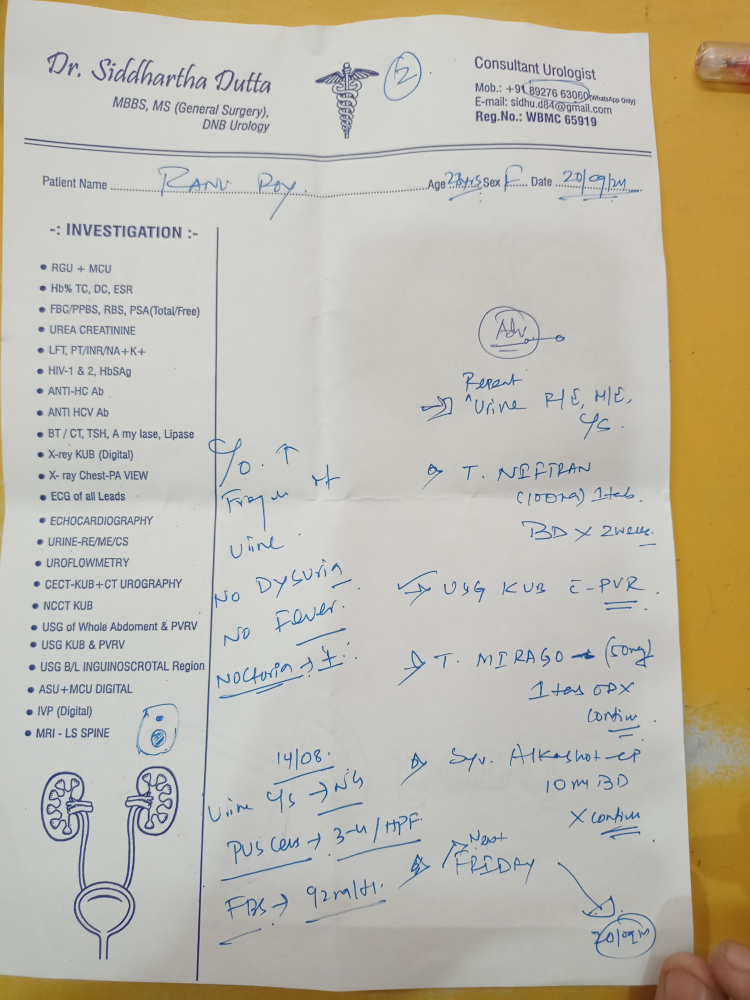 Dr. Siddhartha Dutta
MBBS, MS (General Surgery),
DNB Urology
2
Consultant Urologist
Mob.: +91 89276 63060 (WhatsApp Only)
E-mail: sidhu.d84@gmail.com
Reg.No.: WBMC 65919
Patient Name RANU ROY Age Sex F Date 20/09/24
-: INVESTIGATION :-
• RGU + MCU
• Hb% TC, DC, ESR
• FBC/PPBS, RBS, PSA(Total/Free)
• UREA CREATININE
• LFT, PT/INR/NA+K+
• HIV-1 & 2, HbSAg
• ANTI-HC Ab
• ANTI HCV Ab
• BT / CT, TSH, A my lase, Lipase
• X-rey KUB (Digital)
• X- ray Chest-PA VIEW
• ECG of all Leads
• ECHOCARDIOGRAPHY
• URINE-RE/ME/CS
• UROFLOWMETRY
• CECT-KUB+CT UROGRAPHY
• NCCT KUB
• USG of Whole Abdoment & PVRV
• USG KUB & PVRV
• USG B/L INGUINOSCROTAL Region
• ASU+MCU DIGITAL
• IVP (Digital)
• MRI - LS SPINE
C/O. ↑
of
Urine
No Dysuria
No Fever.
Nocturia → ±
14/08.
Urine C/S → NG
PUS Cells → 3-4/HPF.
FBS →
Adv
Repeat
Urine R/E, M/E,
C/S.
T. NIFTRAN
(100mg) 1tab
BD X 2 weeks
USG KUB C-PVR
T. MIRAGO (50mg)
1 tab OD X
Continue
Syr. Alkashot-CP
10 ml BD
X continue
Next
FRIDAY
20/09/24